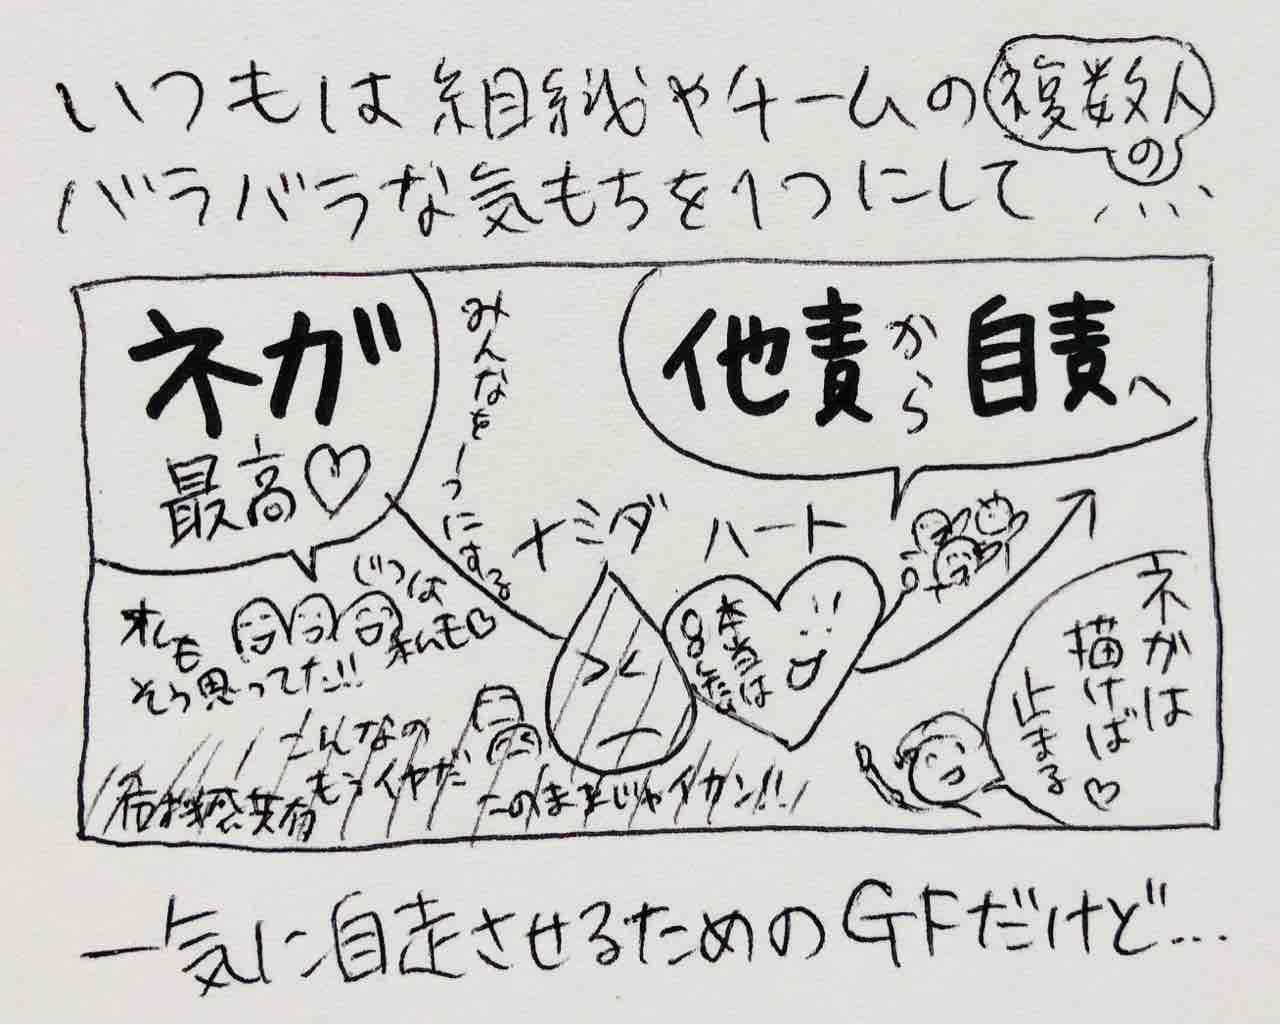 いつもは組織やチームの複数人の
バラバラな気もちを1つにして
ネガ
最高♡
みんなを一つにする
他責から自責へ
ナミダ
ハート
オレも
そう思ってた!!
じつは
私も♡
本当は
こんなの
もうイヤだ
このままじゃイカン!!
危機感共有
ネガは
描けば
止まる♡
一気に自走させるためのGFだけど…